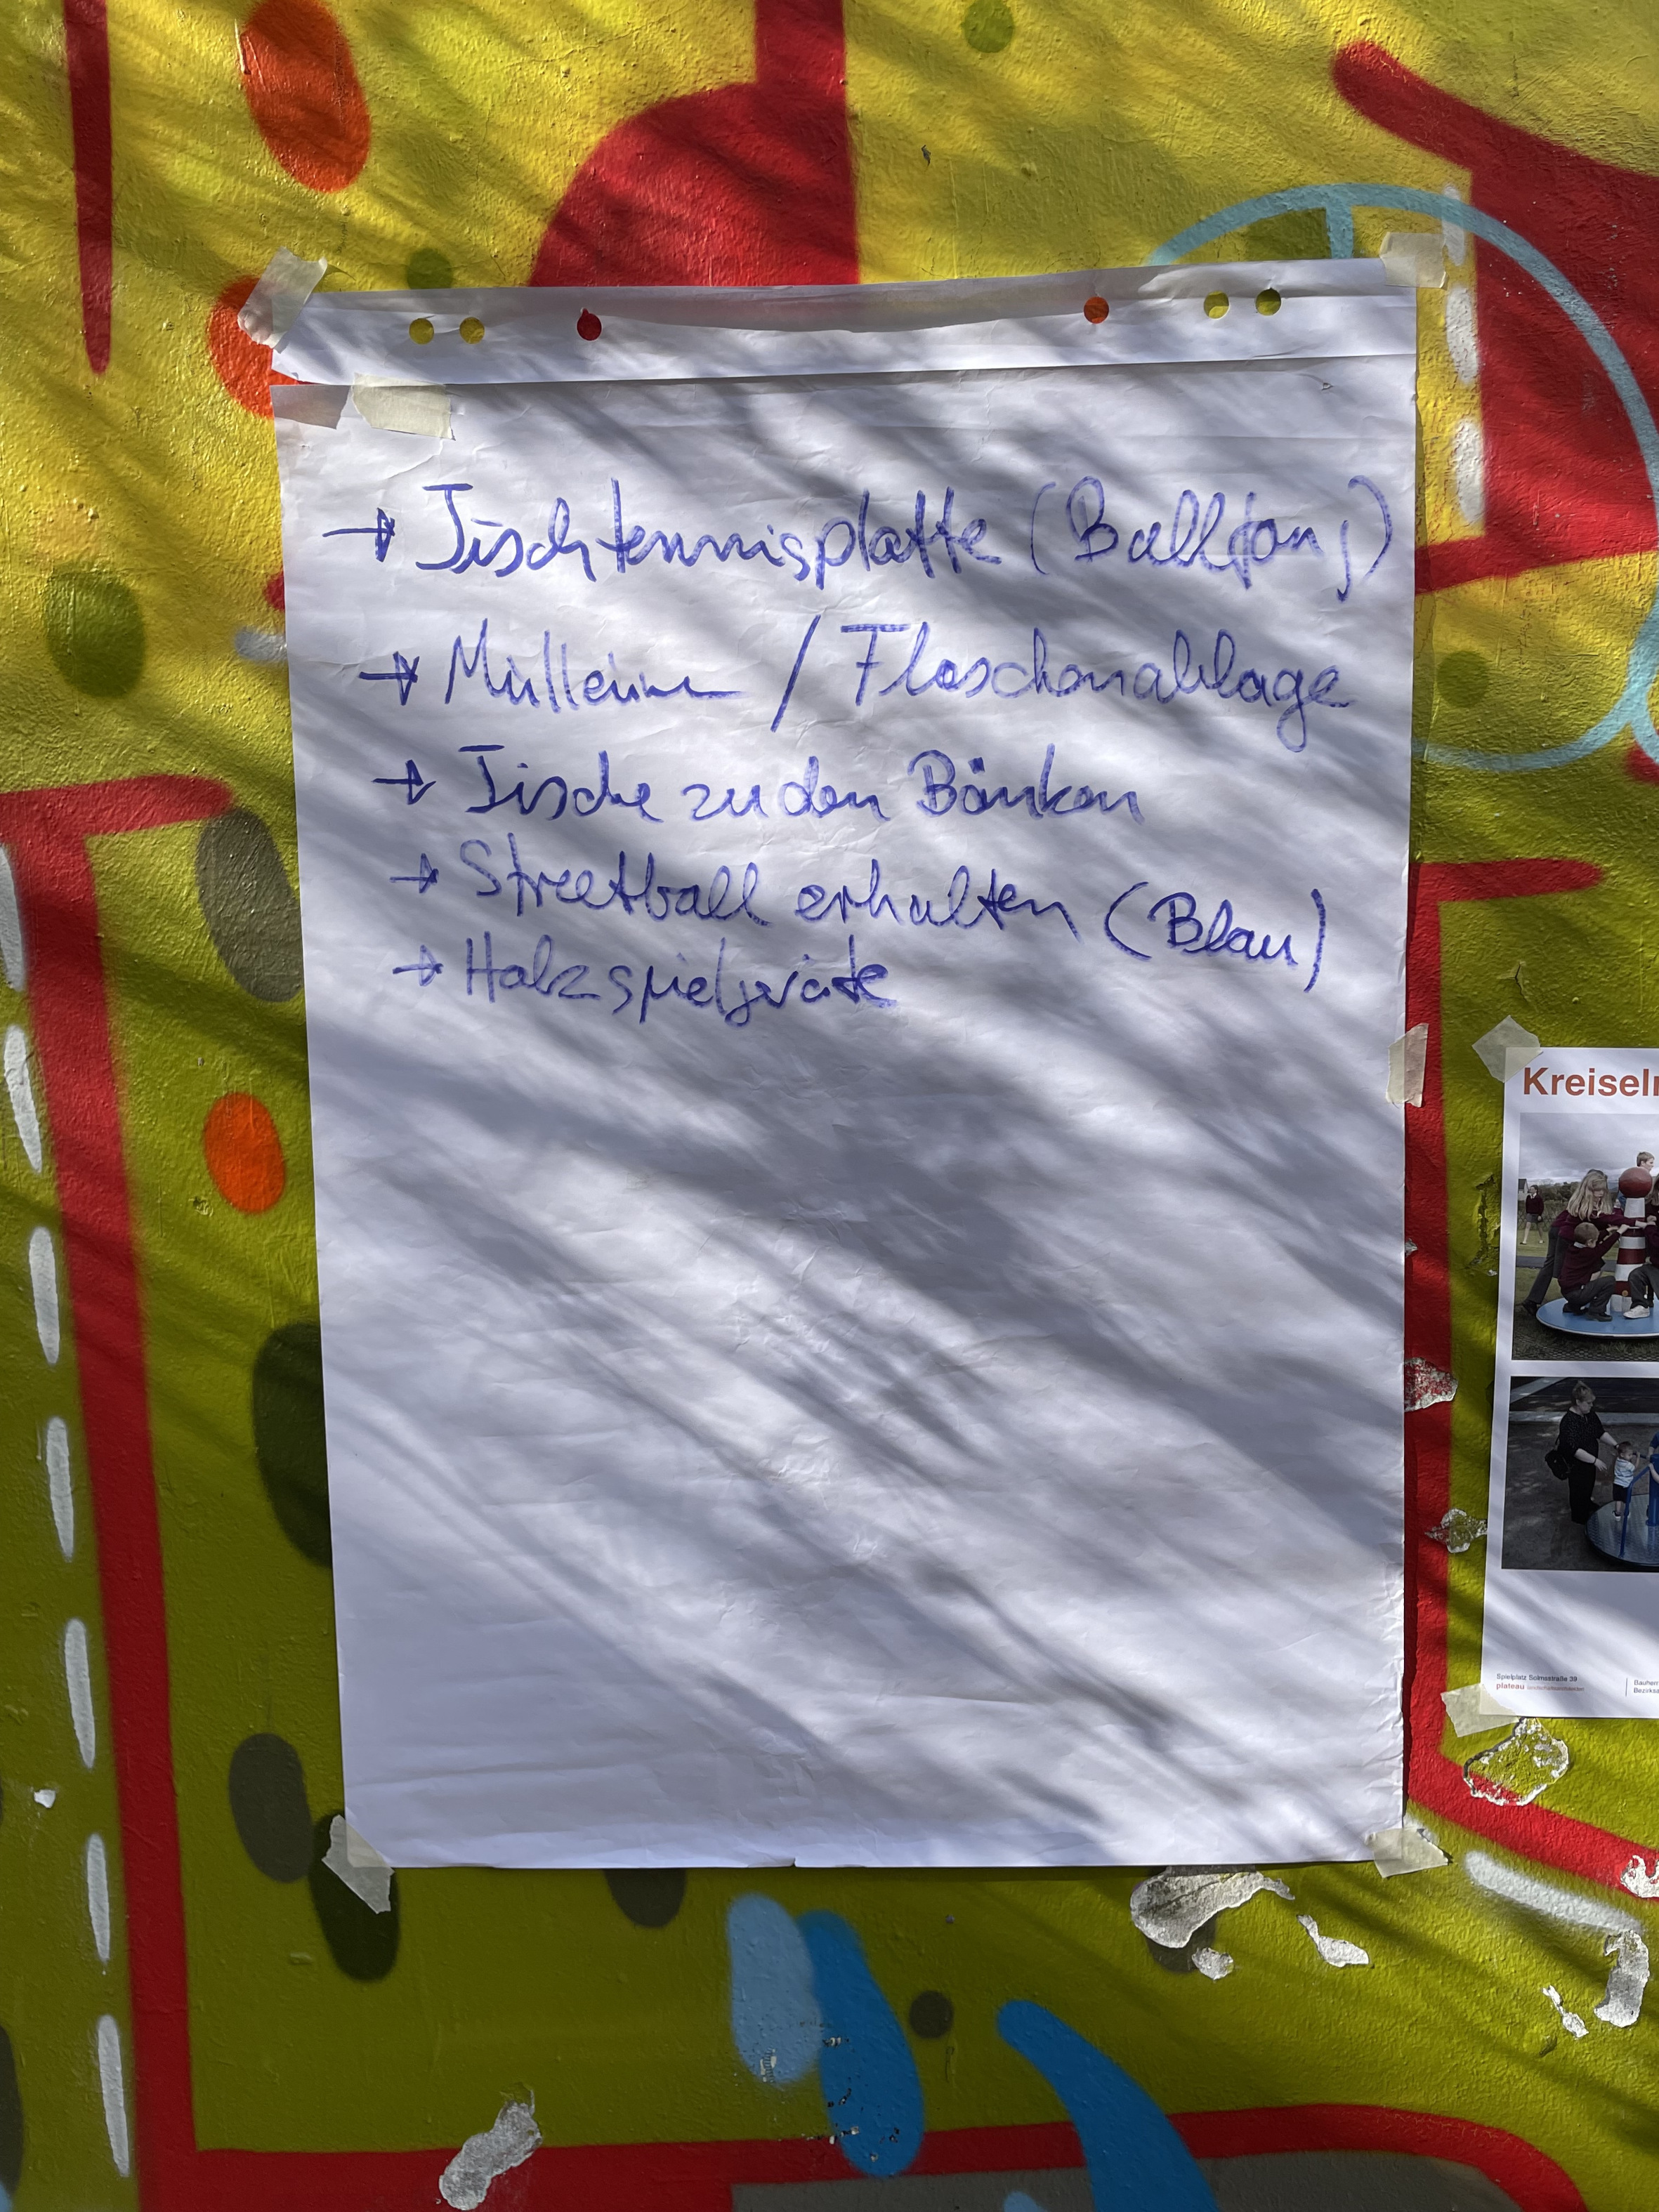 → Tischtennisplatte (Ballfang)
→ Mülleimer / Flaschenablage
→ Tische zu den Bänken
→ Streetball erhalten (Blau)
→ Holzspielgeräte
Kreiseln
Spielplatz Solmsstraße 39
plateau landschaftsarchitekten
Bauherr
Bezirksa